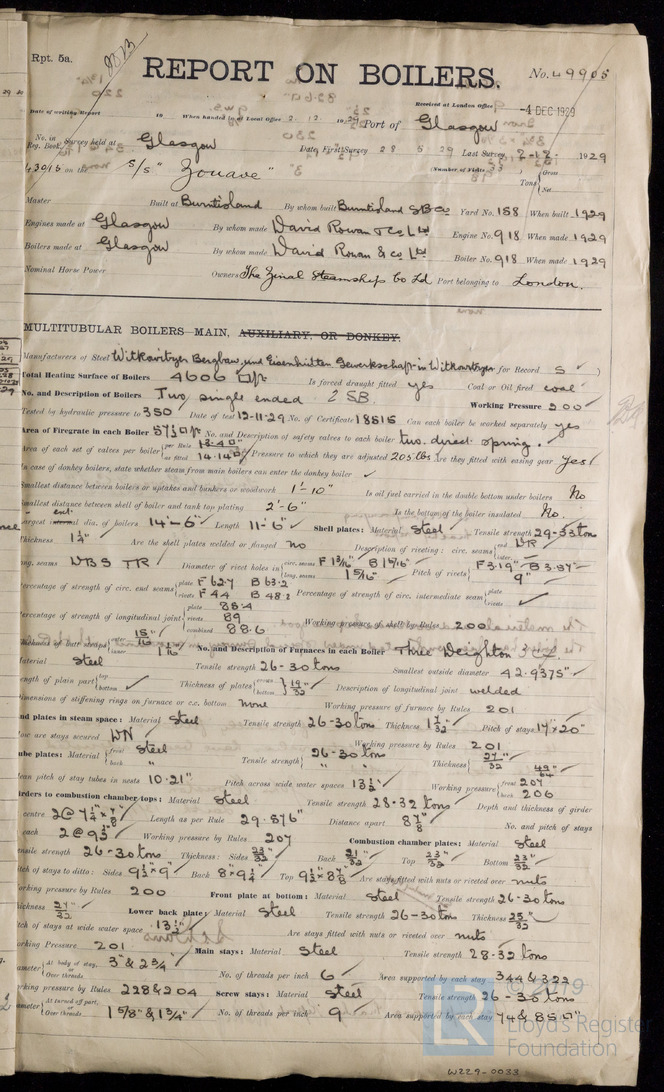 Rpt. 5a.
REPORT ON BOILERS.
No. 49905
Received at London Office -4 DEC 1929
Date of writing Report 19 When handed in at Local Office 2. 12. 1929 Port of Glasgow
No. in Reg. Book. Survey held at Glasgow Date, First Survey 28 5 29 Last Survey 2-12- 1929
on the S/S "Zouave" (Number of Visits 33) Tons Gross Net
Master Built at Burntisland By whom built Burntisland S B Co Yard No. 158 When built 1929
Engines made at Glasgow By whom made David Rowan & Co Ltd Engine No. 918 When made 1929
Boilers made at Glasgow By whom made David Rowan & Co Ltd Boiler No. 918 When made 1929
Nominal Horse Power Owners The Zinal Steamship Co Ld Port belonging to London.
MULTITUBULAR BOILERS MAIN, AUXILIARY, OR DONKEY.
Manufacturers of Steel Witkowitzer Bergbau und Eisenhütten Gewerkschaft in Witkowitzer for Record S
Total Heating Surface of Boilers 4606 Is forced draught fitted yes Coal or Oil fired coal
No. and Description of Boilers Two single ended 2 SB. Working Pressure 200
Tested by hydraulic pressure to 350 Date of test 12-11-29 No. of Certificate 18515 Can each boiler be worked separately yes
Area of Firegrate in each Boiler 57½ No. and Description of safety valves to each boiler two direct spring.
Area of each set of valves per boiler per Rule 13.40 as fitted 14.14 Pressure to which they are adjusted 205 lbs Are they fitted with easing gear Yes
In case of donkey boilers, state whether steam from main boilers can enter the donkey boiler
Smallest distance between boilers or uptakes and bunkers or woodwork 1'-10" Is oil fuel carried in the double bottom under boilers No
Smallest distance between shell of boiler and tank top plating 2'-6" Is the bottom of the boiler insulated No.
Largest internal ext. dia. of boilers 14'-6" Length 11'-6" Shell plates: Material Steel Tensile strength 29-33 tons
Thickness 1¼" Are the shell plates welded or flanged no Description of riveting: circ. seams end DR inter.
long. seams DBS TR Diameter of rivet holes in circ. seams F 1 3/16" B 1 5/16" long. seams 1 5/16" Pitch of rivets F 3.19" B 3.57" 9"
Percentage of strength of circ. end seams plate F 62.7 B 63.2 rivets F 44 B 48.2 Percentage of strength of circ. intermediate seam plate rivets
Percentage of strength of longitudinal joint plate 85.4 rivets 89 combined 88.6 Working pressure of shell by Rules 200
Thickness of butt straps outer 15/16" inner 1 1/16" No. and Description of Furnaces in each Boiler Three Deighton 3 cf
Material Steel Tensile strength 26-30 tons Smallest outside diameter 42.9375"
Length of plain part top bottom Thickness of plates crown bottom 19/32" Description of longitudinal joint welded
Dimensions of stiffening rings on furnace or c.c. bottom None Working pressure of furnace by Rules 201
End plates in steam space: Material Steel Tensile strength 26-30 tons Thickness 1 7/32" Pitch of stays 17" x 20"
How are stays secured DN Working pressure by Rules 201
Tube plates: Material front Steel back " Tensile strength 26-30 tons " " Thickness 27/32" 49/64"
Mean pitch of stay tubes in nests 10.21" Pitch across wide water spaces 13½ Working pressure front 207 back 206
Girders to combustion chamber tops: Material Steel Tensile strength 28-32 tons Depth and thickness of girder
at centre 2 @ 7¼" x ⅞" Length as per Rule 29.876" Distance apart 8⅞" No. and pitch of stays
in each 2 @ 9½" Working pressure by Rules 207 Combustion chamber plates: Material Steel
Tensile strength 26-30 tons Thickness: Sides 23/32" Back 21/32" Top 23/32" Bottom 23/32"
Pitch of stays to ditto: Sides 9½" x 9" Back 8" x 9¼" Top 9½" x 8⅞" Are stays fitted with nuts or riveted over nuts
Working pressure by Rules 200 Front plate at bottom: Material Steel Tensile strength 26-30 tons
Thickness 27/32" Lower back plate: Material Steel Tensile strength 26-30 tons Thickness 25/32"
Pitch of stays at wide water space 13½" Are stays fitted with nuts or riveted over nuts
Working Pressure 201 Main stays: Material Steel Tensile strength 28-32 tons
Diameter At body of stay, or Over threads 3" & 2¾" No. of threads per inch 6 Area supported by each stay 344 & 322
Working pressure by Rules 228 & 204 Screw stays: Material Steel Tensile strength 26-30 tons
Diameter At turned off part, or Over threads 1 5/8" & 1¾" No. of threads per inch 9 Area supported by each stay 74 & 85.5"
© 2019
LR
Lloyd's Register
Foundation
W229-0033